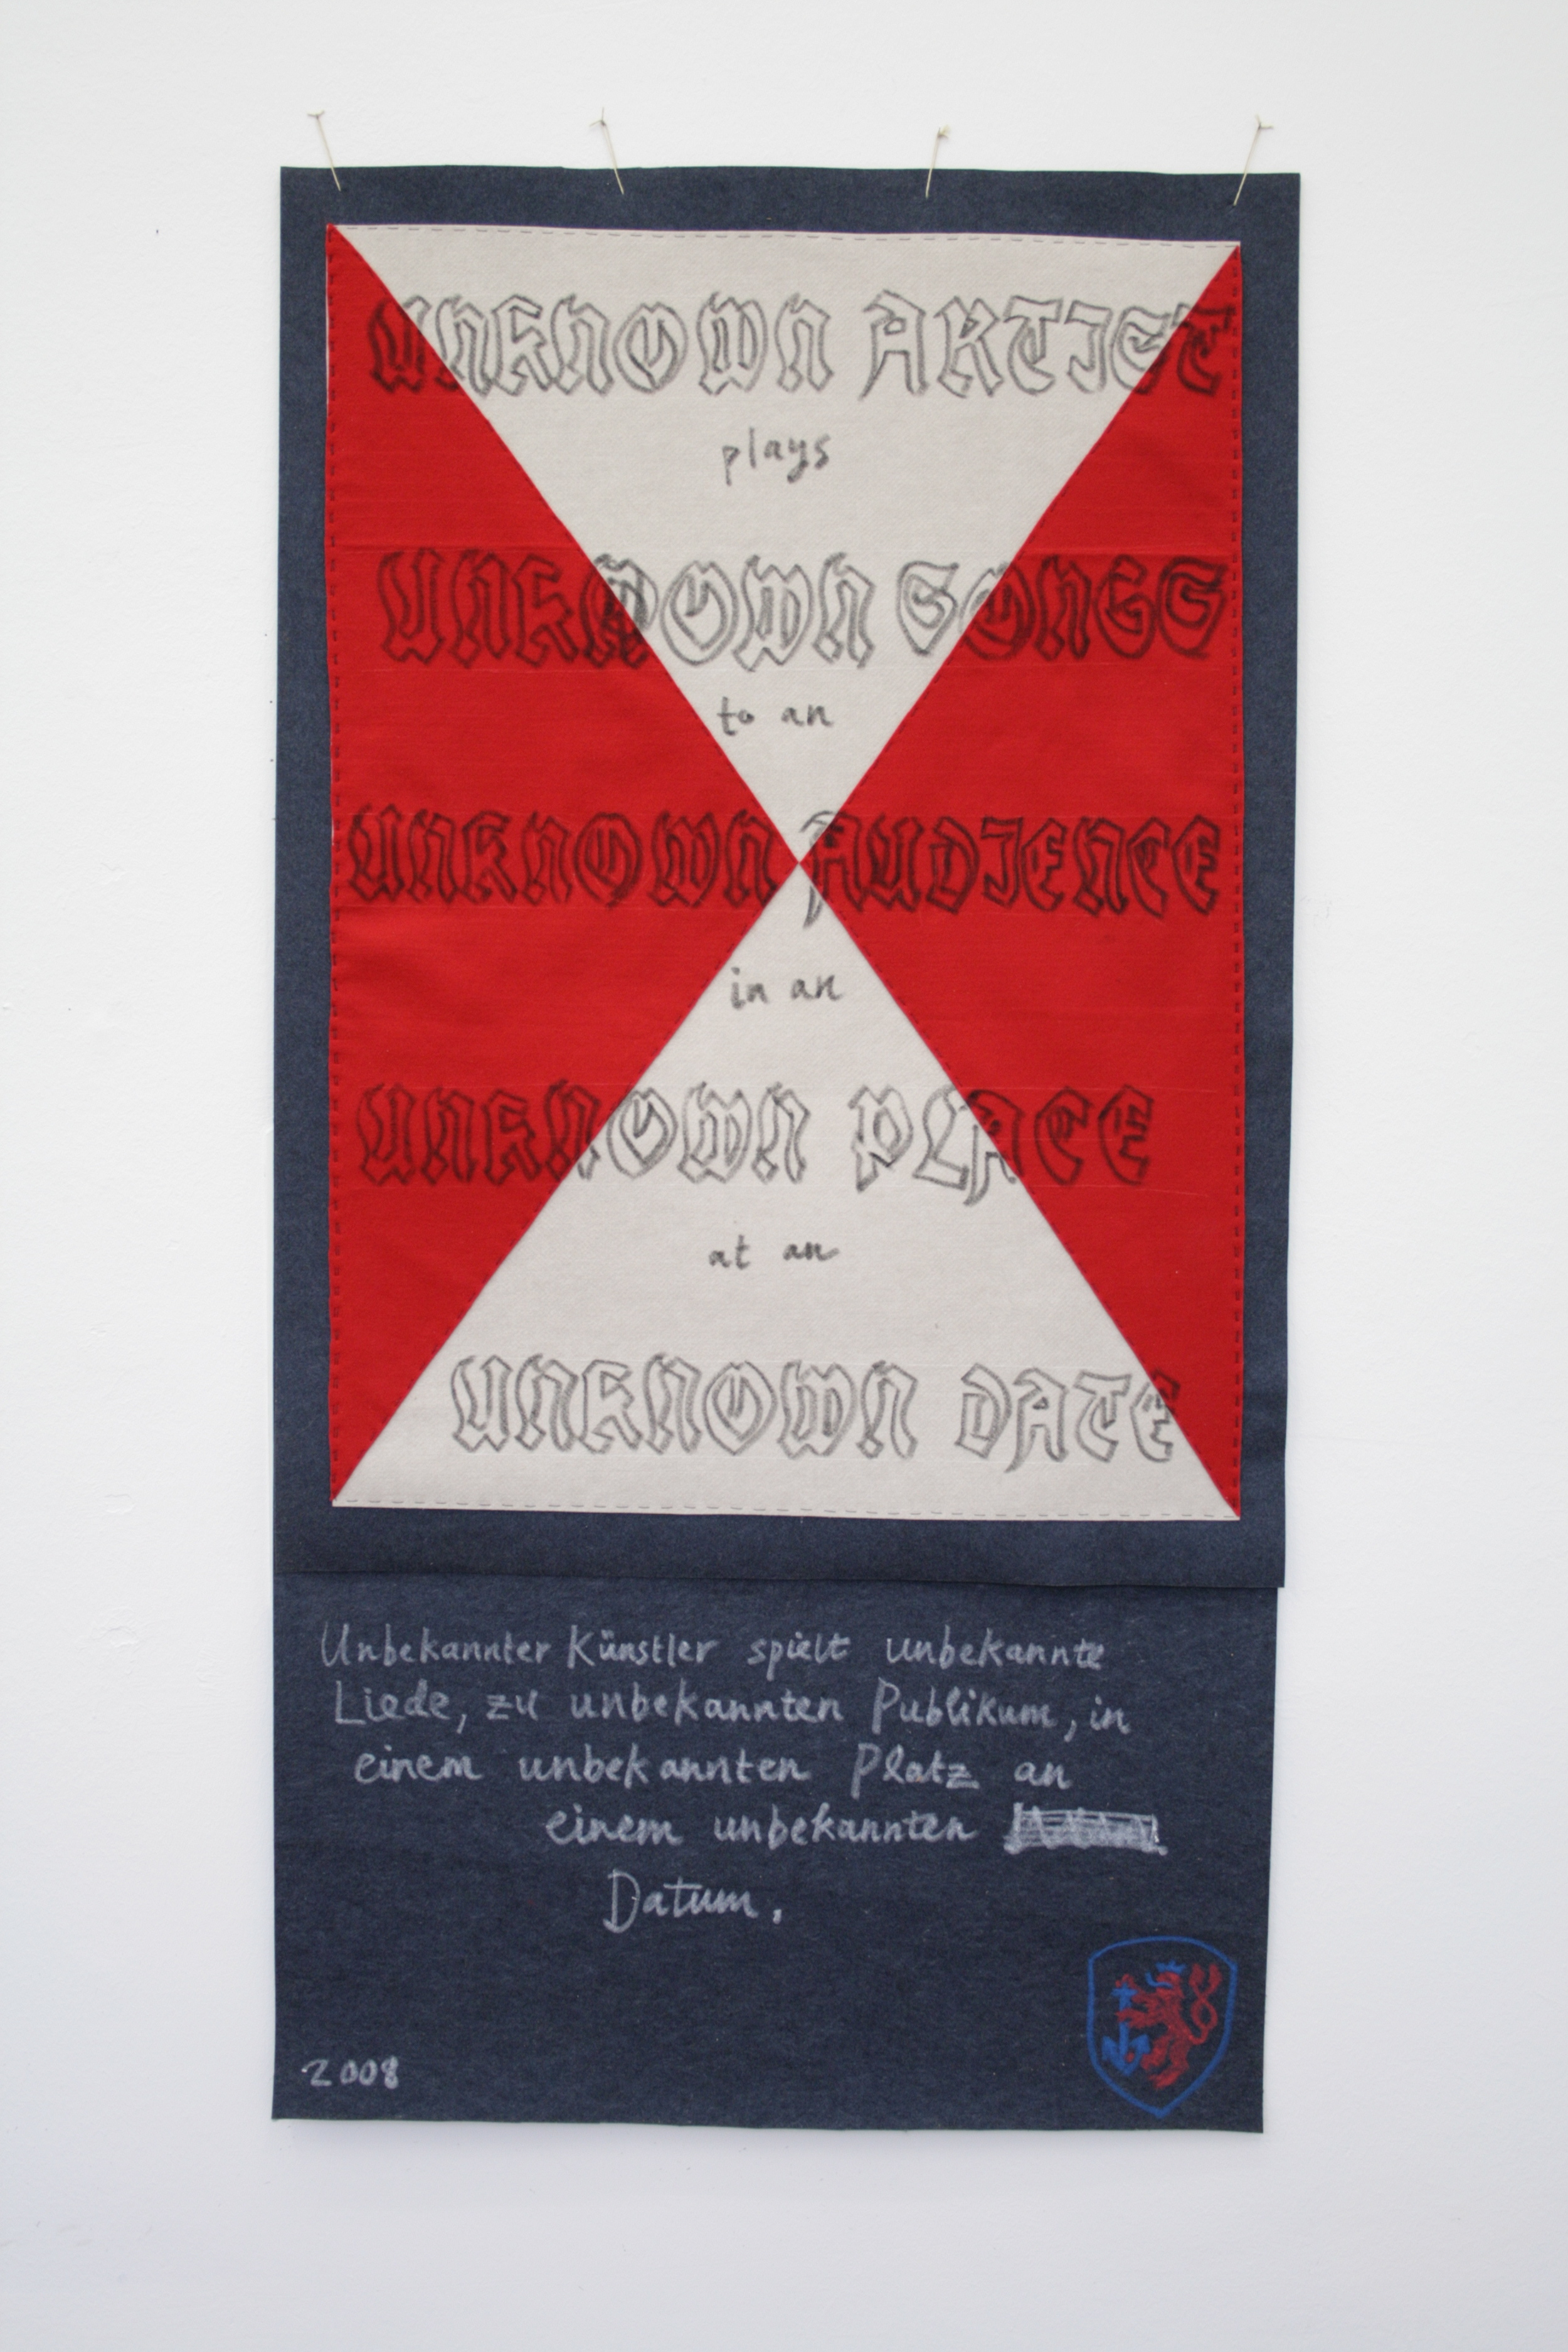 UNKNOWN ARTIST
plays
UNKNOWN SONGS
to an
UNKNOWN AUDIENCE
in an
UNKNOWN PLACE
at an
UNKNOWN DATE
Unbekannter Künstler spielt unbekannte
Liede, zu unbekannten Publikum, in
einem unbekannten Platz an
einem unbekannten
Datum.
2008